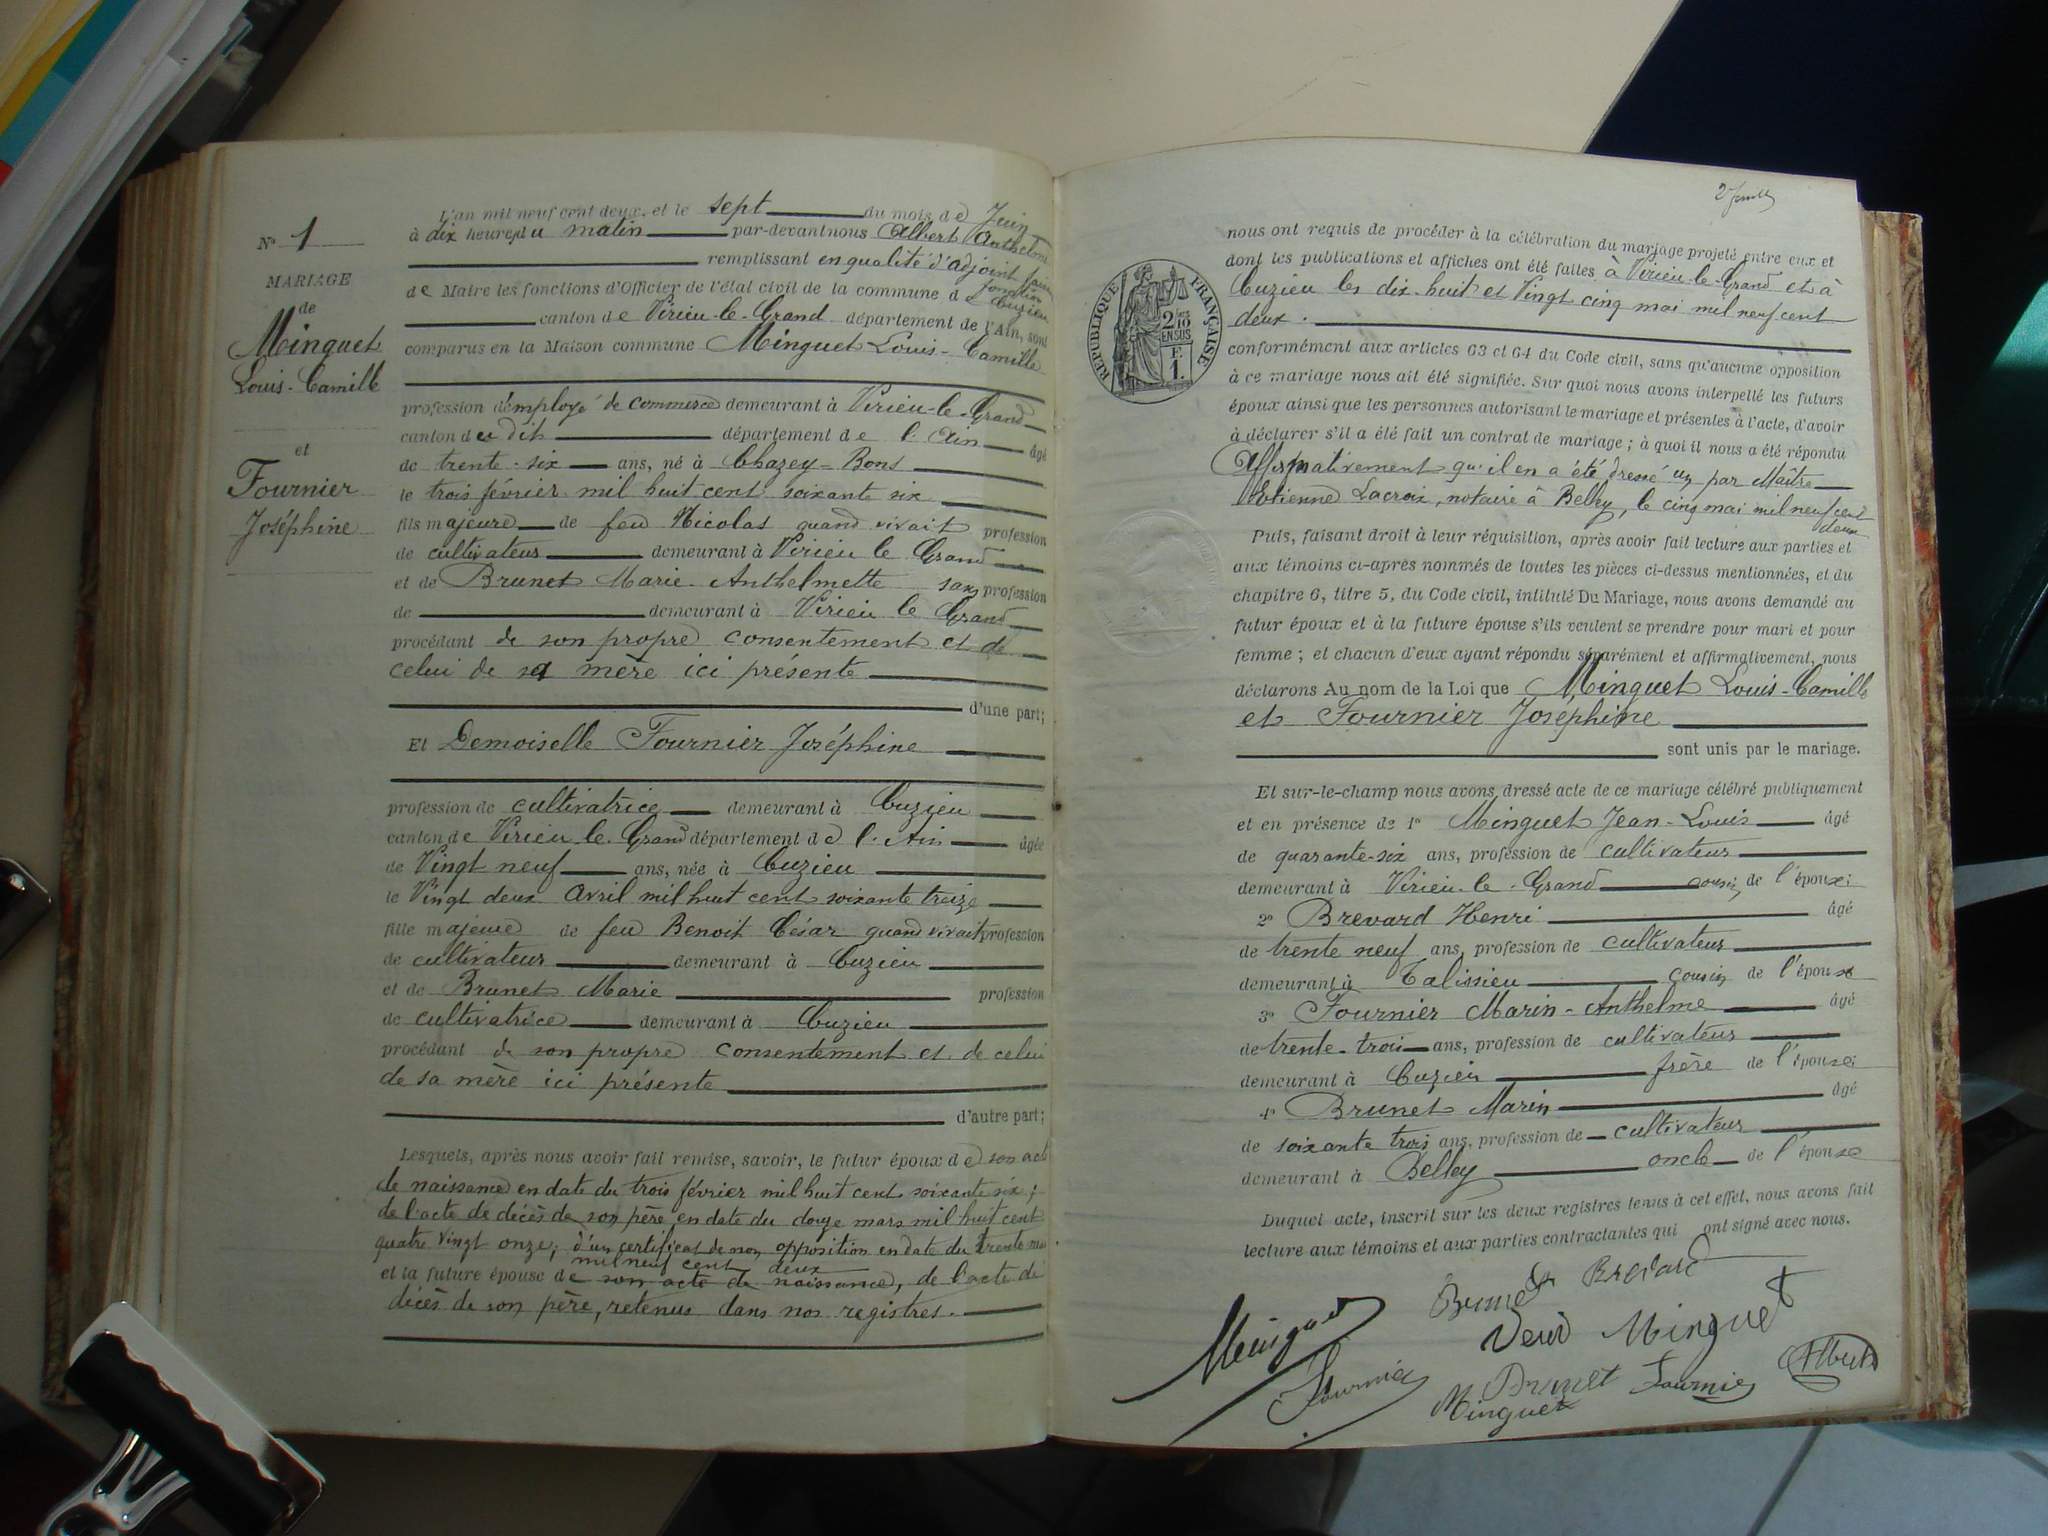 N° 1
MARIAGE
de
Minguet
Louis-Camille
et
Fournier
Joséphine
L'an mil neuf cent deux, et le sept du mois de Juin
à dix heures du matin par-devant nous Albert Anthelme
remplissant en qualité d'adjoint faisant fonction
de Maire les fonctions d'Officier de l'état civil de la commune de Cuzieu
canton de Virieu-le-Grand département de l'Ain, sont
comparus en la Maison commune Minguet Louis-Camille
profession d'employé de commerce demeurant à Virieu-le-Grand
canton du dit département de l'Ain âgé
de trente-six ans, né à Chazey-Bons
le trois février mil huit cent soixante six
fils majeure de feu Nicolas quand vivait profession
de cultivateur demeurant à Virieu le Grand
et de Brunet Marie-Anthelmette sans profession
de demeurant à Virieu le Grand
procédant de son propre consentement et de
celui de sa mère ici présente
d'une part;
Et Demoiselle Fournier Joséphine
profession de cultivatrice demeurant à Cuzieu
canton de Virieu-le-Grand département de l'Ain âgée
de Vingt neuf ans, née à Cuzieu
le Vingt deux Avril mil huit cent soixante treize
fille majeure de feu Benoit César quand vivait profession
de cultivateur demeurant à Cuzieu
et de Brunet Marie profession
de cultivatrice demeurant à Cuzieu
procédant de son propre consentement et de celui
de sa mère ici présente
d'autre part;
Lesquels, après nous avoir fait remise, savoir, le futur époux de son acte
de naissance en date du trois février mil huit cent soixante six;
de l'acte de décès de son père en date du douze mars mil huit cent
quatre vingt onze; d'un certificat de non opposition en date du trente mai
mil neuf cent deux
et la future épouse de son acte de naissance, de l'acte de
décès de son père, retenus dans nos registres.
2 feuille
RÉPUBLIQUE FRANÇAISE
2/10
EN SUS
F.
1.
nous ont requis de procéder à la célébration du mariage projeté entre eux et
dont les publications et affiches ont été faites à Virieu-le-Grand et à
Cuzieu les dix-huit et Vingt cinq mai mil neuf cent
deux.
conformément aux articles 63 et 64 du Code civil, sans qu'aucune opposition
à ce mariage nous ait été signifiée. Sur quoi nous avons interpellé les futurs
époux ainsi que les personnes autorisant le mariage et présentes à l'acte, d'avoir
à déclarer s'il a été fait un contrat de mariage; à quoi il nous a été répondu
Affirmativement qu'il en a été dressé un par Maître
Etienne Lacroix, notaire à Belley, le cinq mai mil neuf cent
deux
Puis, faisant droit à leur réquisition, après avoir fait lecture aux parties et
aux témoins ci-après nommés de toutes les pièces ci-dessus mentionnées, et du
chapitre 6, titre 5, du Code civil, intitulé Du Mariage, nous avons demandé au
futur époux et à la future épouse s'ils veulent se prendre pour mari et pour
femme; et chacun d'eux ayant répondu séparément et affirmativement, nous
déclarons Au nom de la Loi que Minguet Louis-Camille
et Fournier Joséphine
sont unis par le mariage.
Et sur-le-champ nous avons dressé acte de ce mariage célébré publiquement
et en présence de 1° Minguet Jean-Louis âgé
de quarante-six ans, profession de cultivateur
demeurant à Virieu-le-Grand cousin de l'époux;
2° Brevard Henri âgé
de trente neuf ans, profession de cultivateur
demeurant à Talissieu cousin de l'époux
3° Fournier Marin-Anthelme âgé
de trente-trois ans, profession de cultivateur
demeurant à Cuzieu frère de l'épouse;
4° Brunet Marin âgé
de soixante trois ans, profession de cultivateur
demeurant à Belley oncle de l'épouse
Duquel acte, inscrit sur les deux registres tenus à cet effet, nous avons fait
lecture aux témoins et aux parties contractantes qui ont signé avec nous.
Brunet Brevard
Minguet Veuve Minguet
Fournier Brunet Fournier Albert
Minguet